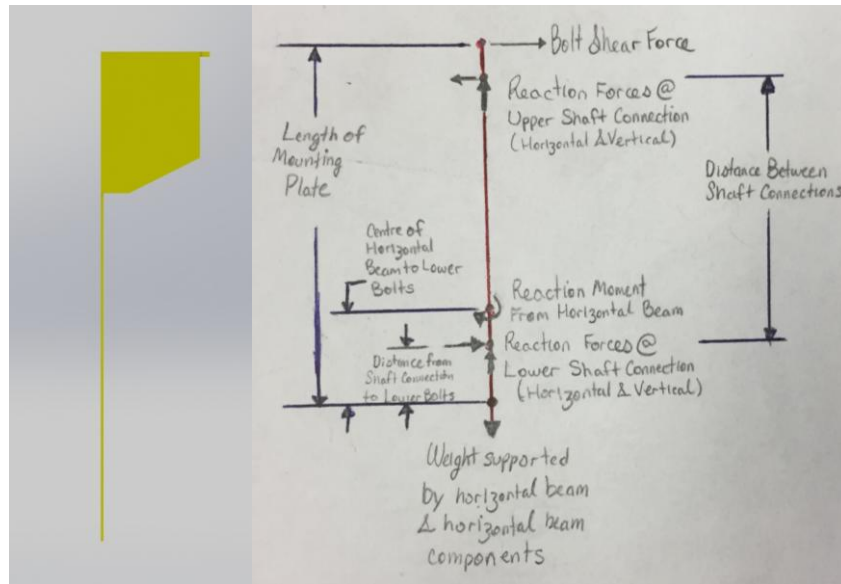 Bolt Shear Force
Reaction Forces @
Upper Shaft Connection
(Horizontal & Vertical)
Length of
Mounting
Plate
Distance Between
Shaft Connections
Centre of
Horizontal
Beam to Lower
Bolts
Reaction Moment
From Horizontal Beam
Reaction Forces @
Lower Shaft Connection
(Horizontal & Vertical)
Distance from
Shaft Connection
to Lower Bolts
Weight supported
by horizontal beam
& horizontal beam
components